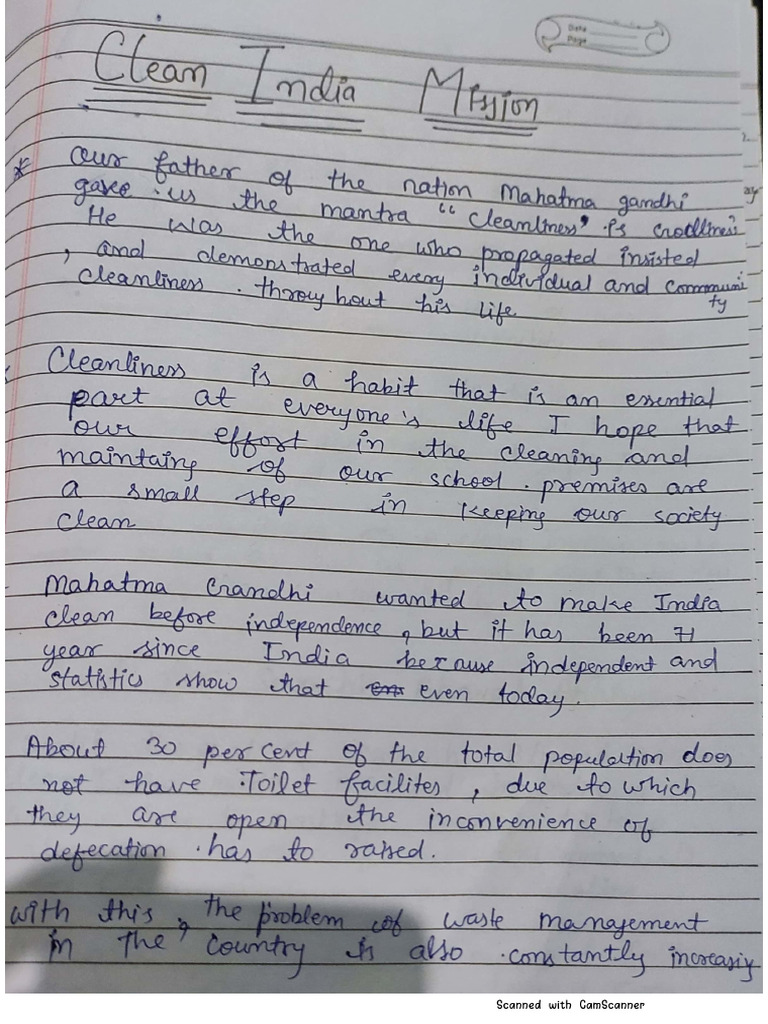 Date
Page
Clean India Mission
* our father of the nation Mahatma gandhi
gave us the mantra "cleanliness" is Godliness
He was the one who propagated insisted
, and demonstrated every individual and communi
ty
cleanliness . throughout his life
Cleanliness is a habit that is an essential
part at everyone's life I hope that
our effort in the cleaning and
maintaing of our school . premises are
a small step in keeping our society
clean
Mahatma Gandhi wanted to make India
clean before independence, but it has been 71
year since India became independent and
statistics show that even today.
About 30 per cent of the total population does
not have Toilet facilites, due to which
they are open the inconvenience of
defecation . has to raised.
with this, the problem of waste management
in the country is also . constantly increasig
Scanned with CamScanner